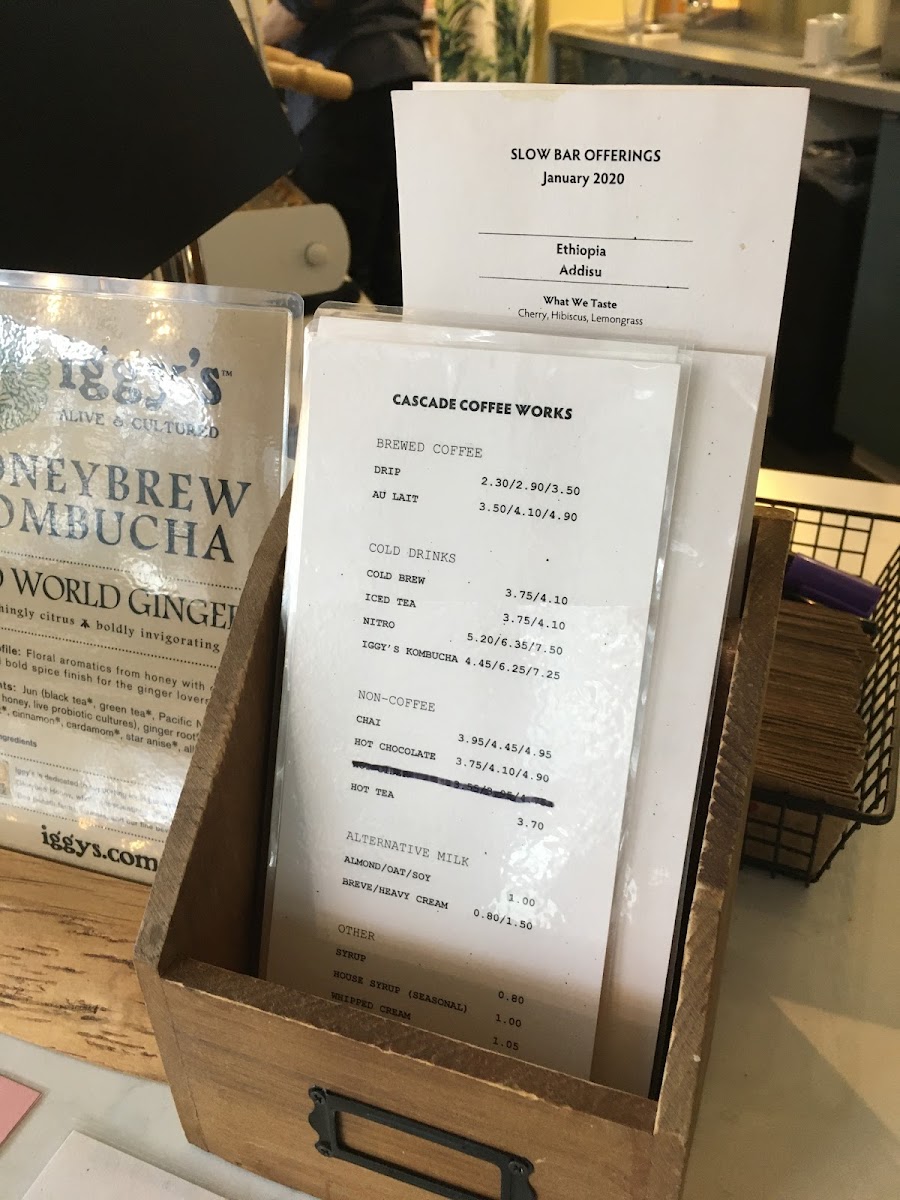 SLOW BAR OFFERINGS
January 2020
Ethiopia
Addisu
What We Taste
Cherry, Hibiscus, Lemongrass
CASCADE COFFEE WORKS
BREWED COFFEE
DRIP 2.30/2.90/3.50
AU LAIT 3.50/4.10/4.90
COLD DRINKS
COLD BREW 3.75/4.10
ICED TEA 3.75/4.10
NITRO 5.20/6.35/7.50
IGGY'S KOMBUCHA 4.45/6.25/7.25
NON-COFFEE
CHAI 3.95/4.45/4.95
HOT CHOCOLATE 3.75/4.10/4.90
HOT TEA 3.70
ALTERNATIVE MILK
ALMOND/OAT/SOY 1.00
BREVE/HEAVY CREAM 0.80/1.50
OTHER
SYRUP 0.80
HOUSE SYRUP (SEASONAL) 1.00
WHIPPED CREAM 1.05
iggy's™
ALIVE & CULTURED
ONEYBREW
OMBUCHA
WORLD GINGER
hingly citrus boldly invigorating
ofile: Floral aromatics from honey with
bold spice finish for the ginger lover
nts: Jun (black tea*, green tea*, Pacific N
honey, live probiotic cultures), ginger root*
*, cinnamon*, cardamom*, star anise*, all
ngredients
iggy's is dedicated
iggys.com